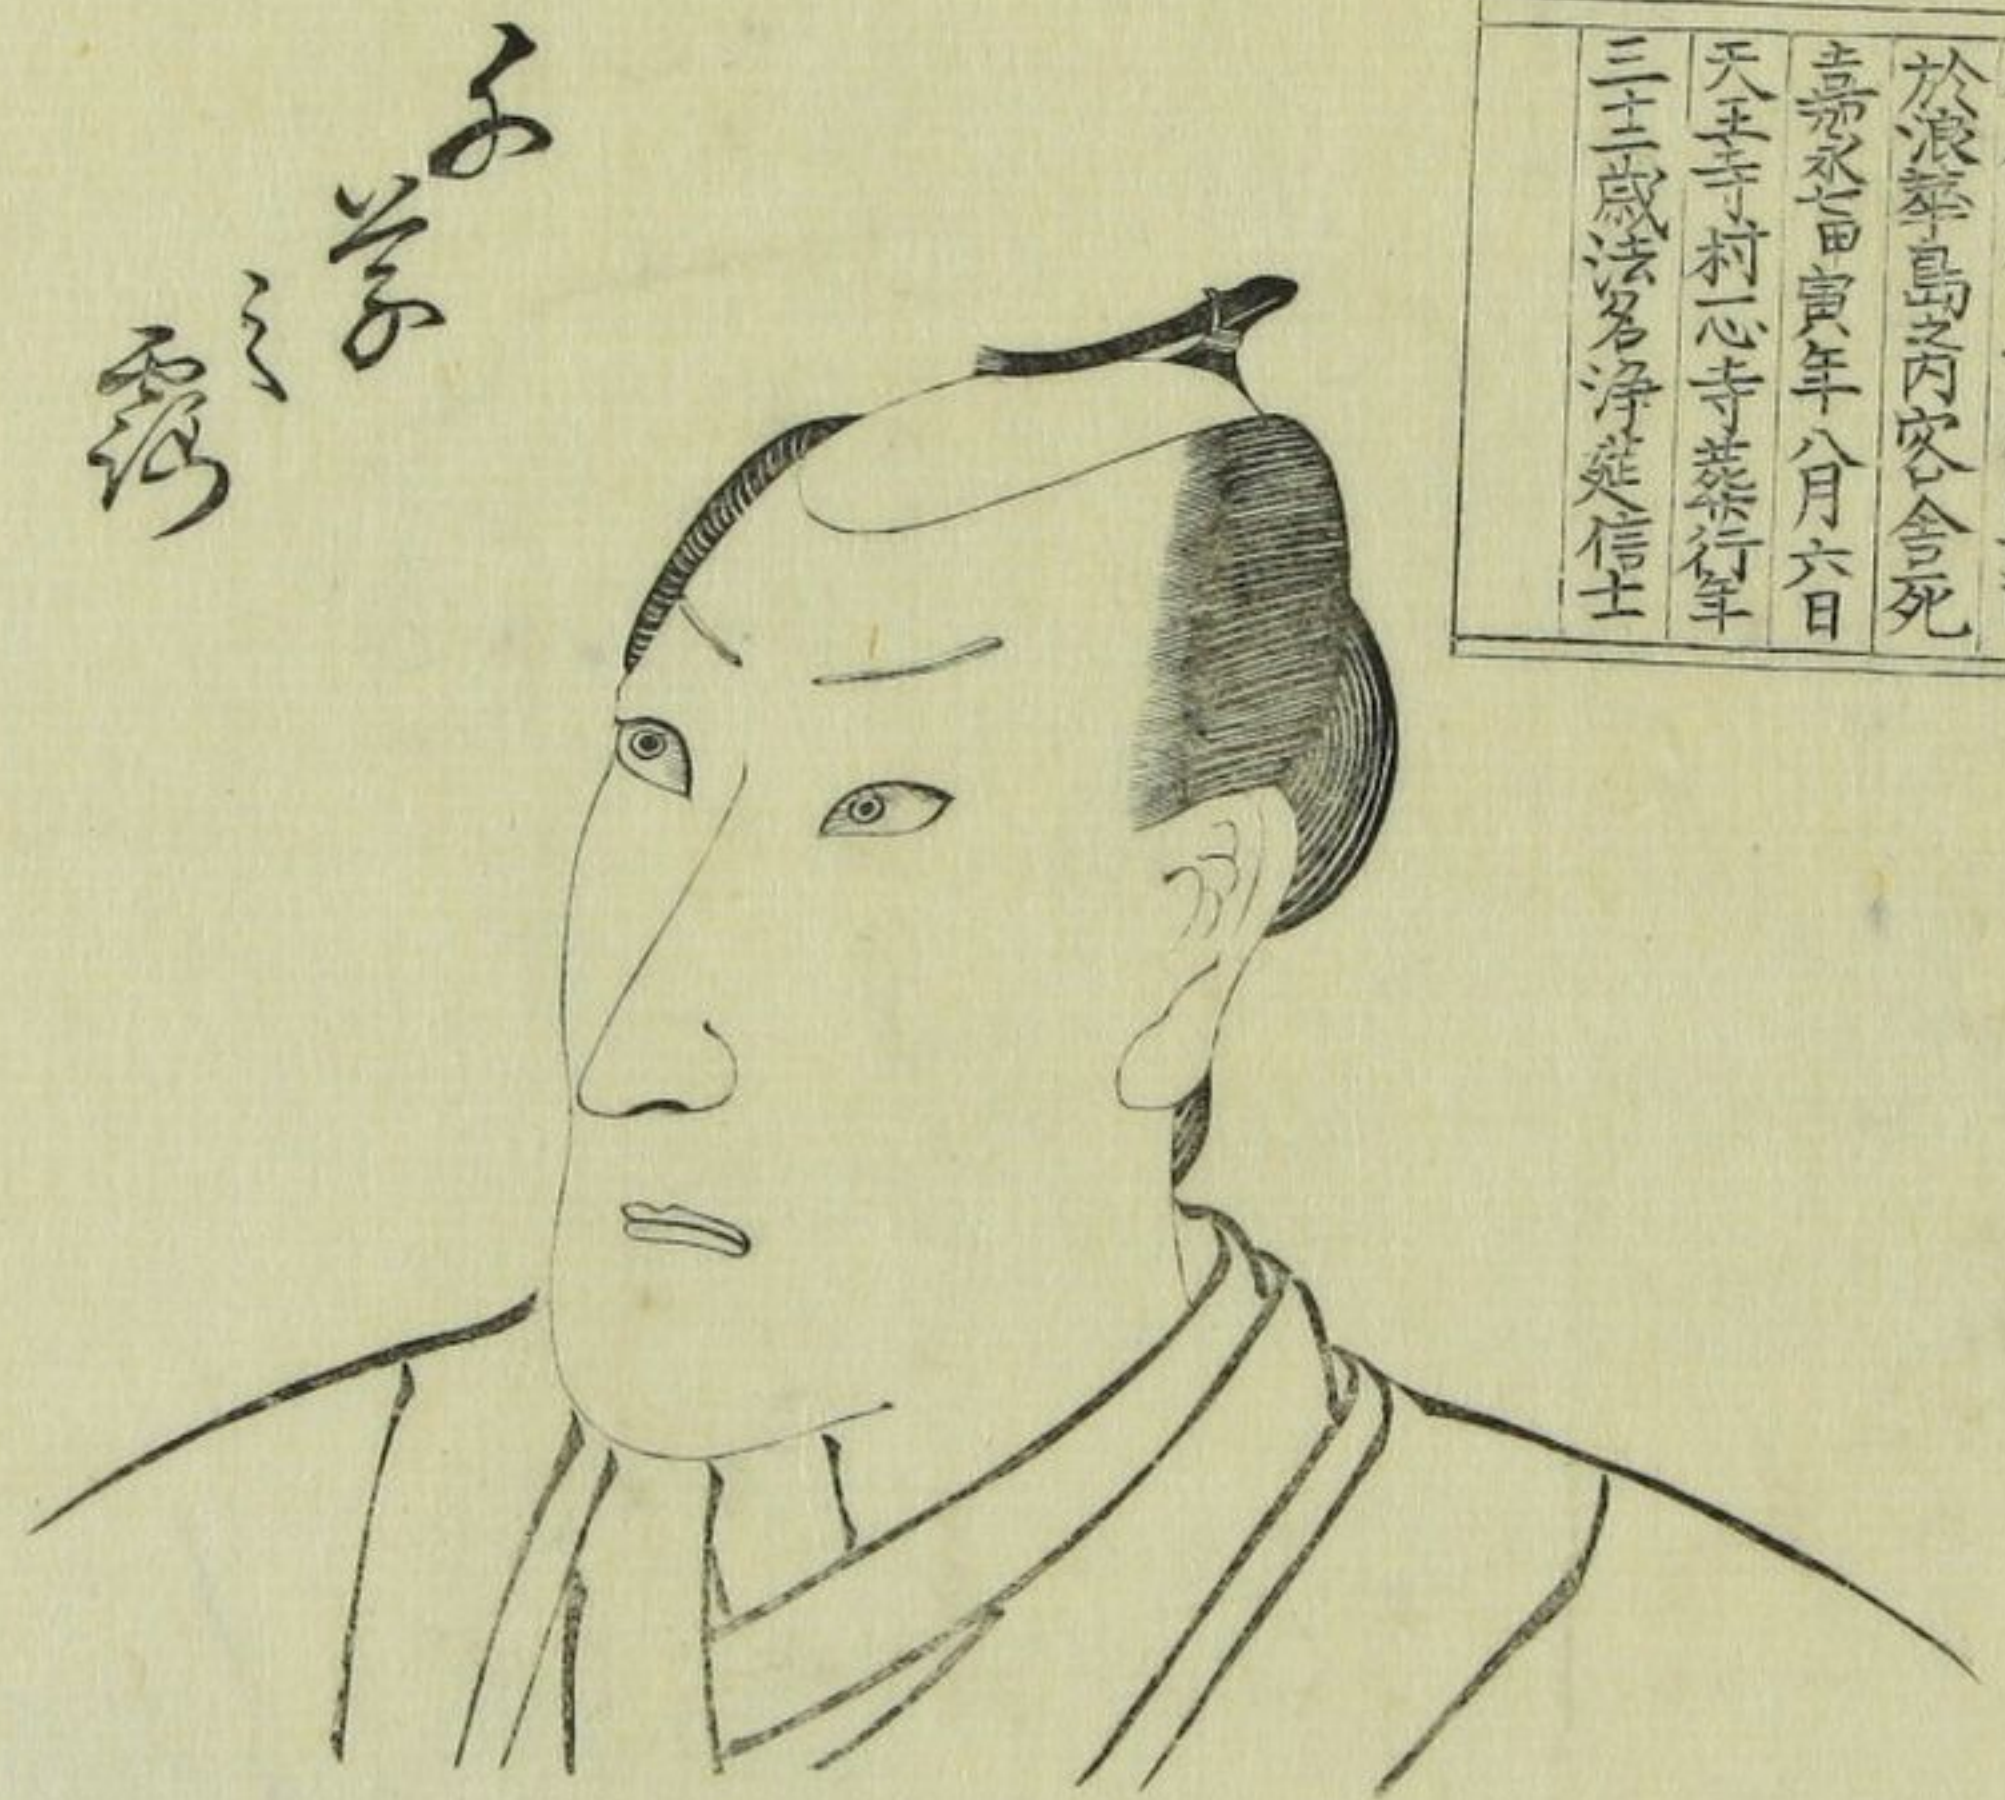 於浪華島之内客舎死
嘉永七甲寅年八月六日
天王寺村一心寺葬行年
三十二歳法名浄莚信士
千草之露